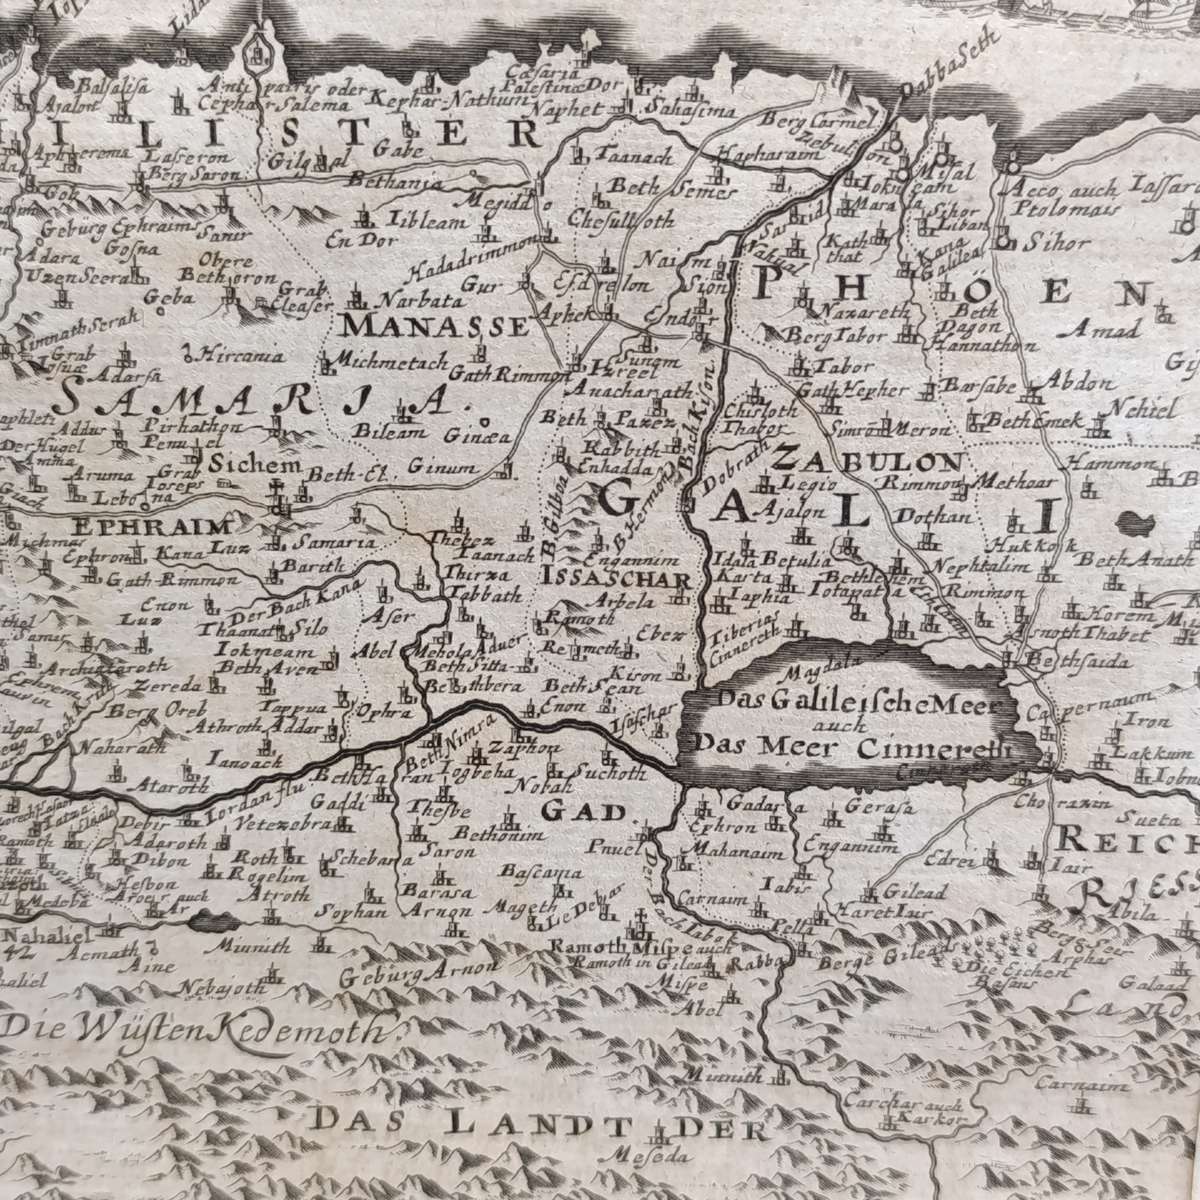 Dabbaseth
Balsalisa
Antipatris oder
Cephar Salema
Kephar-Nathum
Cæsaria
Palestinæ
Dor
Naphet
Sahasima
Ajalont
Berg Carmel
Zebulon
ILISTER
Lasseron
Gilgal
Gabe
Taanach
Hapharaim
Misal
Berg Saron
Bethania
Megiddo
Beth Semes
Iokneam
Acco auch
Ptolomais
Iassar
Gok
Gebürg Ephraims
Iibleam
Chesulloth
Mara
Sihor
Liban
Sihor
Gosna
Sanir
En Dor
Hadadrimmon
Naim
Sarid
Kath
that
Kana
Galileæ
Adara
Uzen Seera
Obere
Bethoron
Gur
Esdrelon
Sion
PHÖEN
Geba
Grab
Eleaser
Narbata
Aphek
Endor
Nazareth
Beth
Dagon
Amad
Timnath Serah
MANASSE
Berg Tabor
Hannathon
Grab
Josuæ
Adarsa
Hircania
Michmetach
Gath Rimmon
Sunem
Izreel
Tabor
Anacharath
Gath Hepher
Barsabe
Abdon
SAMARIA
Beth
Pazez
Chisloth
Thabor
Nehiel
Addus
Pirhathon
Penuel
Bileam
Ginæa
Simron
Meron
Beth Emek
Der Hugel
Amma
Sichem
Rabbith
Enhadda
Bach Kison
Dobrath
ZABULON
Hammon
Aruma
Grab
Ioseps
Beth-El
Ginum
Legio
Rimmon
Methoar
Lebona
B. Gilboa
B Hermon
GALI
Ajalon
Dothan
EPHRAIM
Michmas
Hukkok
Ephron
Kana
Luz
Samaria
Thebez
Taanach
Engannim
Idala
Betulia
Beth Anath
Gath-Rimmon
Barith
Thirza
ISSASCHAR
Karta
Bethlehem
Nephtalim
Enon
Der Bach Kana
Tebbath
Arbela
Iaphia
Iotapata
Rimmon
Horem
Luz
Thaanat
Silo
Aser
Ramoth
Ebez
Tiberias
Cinnereth
Thabet
Iokmeam
Abel
Mehola
Aduer
Remeth
Archiataroth
Beth Aven
Beth Sitta
Kison
Magdala
Bethsaida
Zereda
Tappua
Ophra
Bethabera
Beth Sean
Das Galileische Meer
Berg Oreb
Enon
Isaschar
auch
Capernaum
Bach Krith
Athroth Addar
Das Meer Cinnereth
Iron
Naharath
Ianoach
Beth Nimra
Zaphon
Lakkum
Ataroth
Beth Haran
Iogbeha
Suchoth
Iordan flu
Gaddi
Nobah
Gadara
Gerasa
Chorazin
Debir
Vetezobra
Thesbe
GAD
Ephron
Sueta
Adaroth
Bethonim
Engannim
REICH
Dibon
Roth
Schebana
Saron
Pnuel
Mahanaim
Edrei
Iair
Hesbon
Rogelim
Bascania
Iabis
Gilead
RIESS
Aroer auch
Ar
Atroth
Barasa
Der Bach Iabok
Medeba
Sophan
Arnon
Mageth
Le Debar
Carnaim
Haret Iair
Abila
Nahaliel
Pella
42
Aemath
Minnith
Ramoth Mispe auch
Ramoth in Gilead
Rabba
Berge Gilead
Berg Seir
Arphar
Aine
Gebürg Arnon
Mispe
Die Eichen
Basans
Galaad
Nebajoth
Abel
Land
Die Wüsten Kedemoth.
Minnith
Carnaim
Carchar auch
Karkor
DAS LANDT DER
Meseda